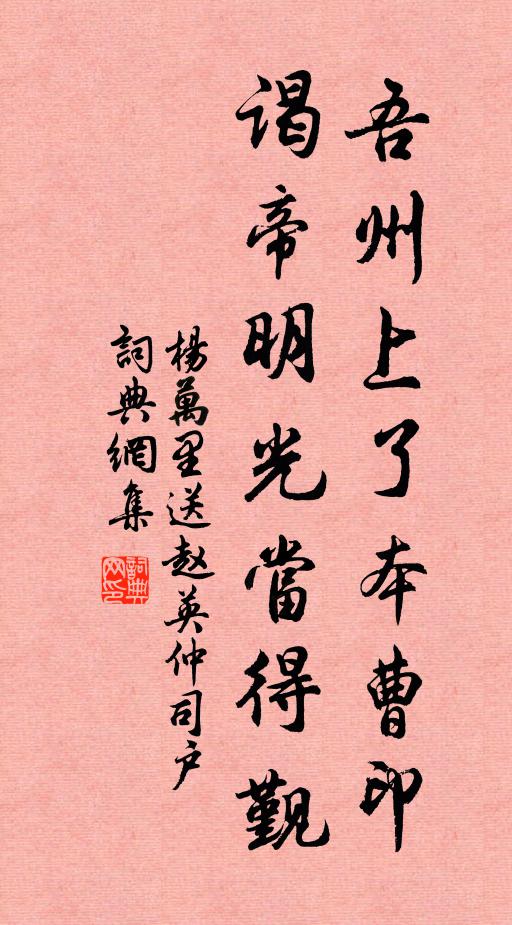 吾州上了本曹印
谒帝明光當得觀
楊萬里送赵英仲司户
詞典網集
詞典网印